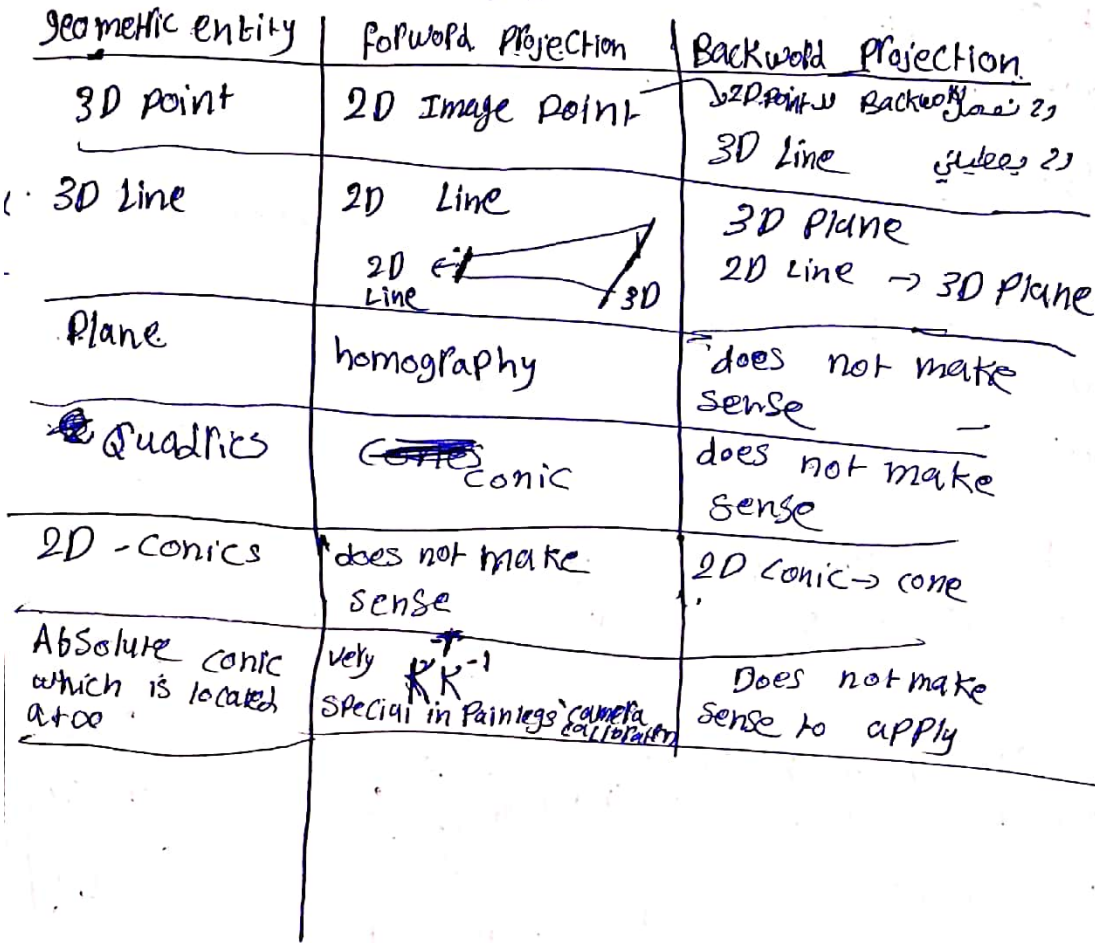 geometric entity forword projection Backword projection.
3D point 2D Image point 2D point Backword
3D Line
3D Line 2D Line 3D Plane
2D Line 3D 2D Line → 3D Plane
Plane homography does not make sense
Quadrics conic does not make sense
2D - conics does not make sense 2D conic → cone
Absolute conic which is located at ∞ very K^-T K^-1 special in camera calibration Does not make sense to apply